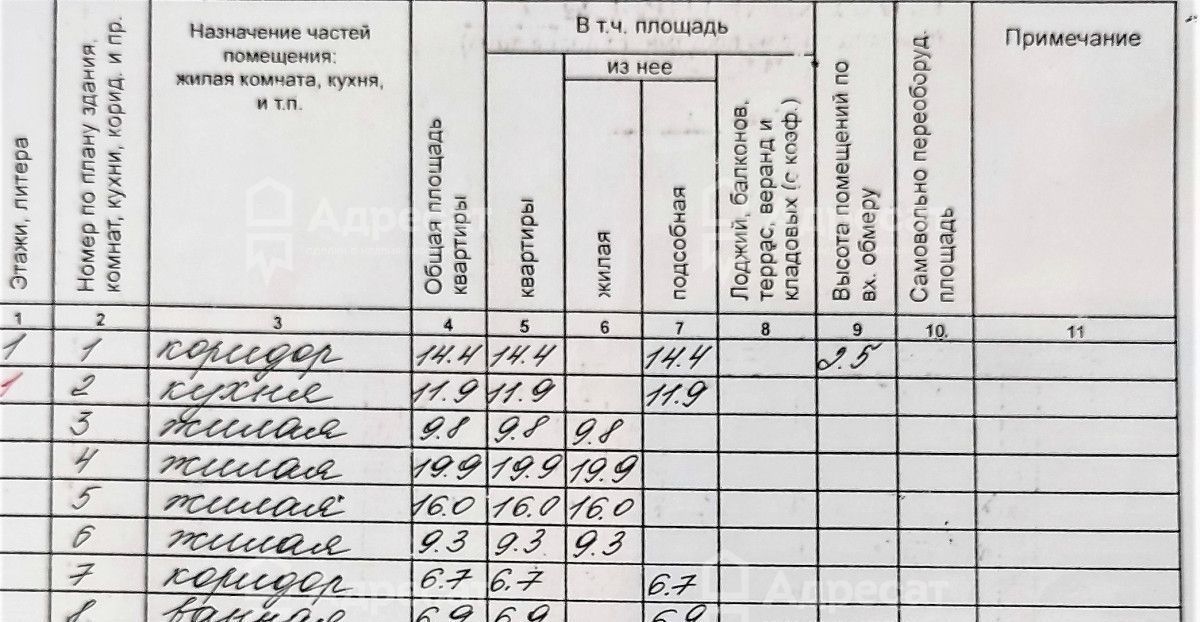 Этажи, литера
Номер по плану здания, комнат, кухни, корид. и пр.
Назначение частей
помещения:
жилая комната, кухня,
и т.п.
Общая площадь
квартиры
В т.ч. площадь
квартиры
из нее
жилая
подсобная
Лоджий, балконов,
террас, веранд и
кладовых (с коэф.)
Высота помещений по
вх. обмеру
Самовольно переоборуд.
площадь
Примечание
1 2 3 4 5 6 7 8 9 10. 11
1 1 коридор 14.4 14.4 14.4 2.5
1 2 кухня 11.9 11.9 11.9
3 жилая 9.8 9.8 9.8
4 жилая 19.9 19.9 19.9
5 жилая 16.0 16.0 16.0
6 жилая 9.3 9.3 9.3
7 коридор 6.7 6.7 6.7
8. ванная 6.9 6.9 6.9
Адресат
Адресат
Адресат
Адресат